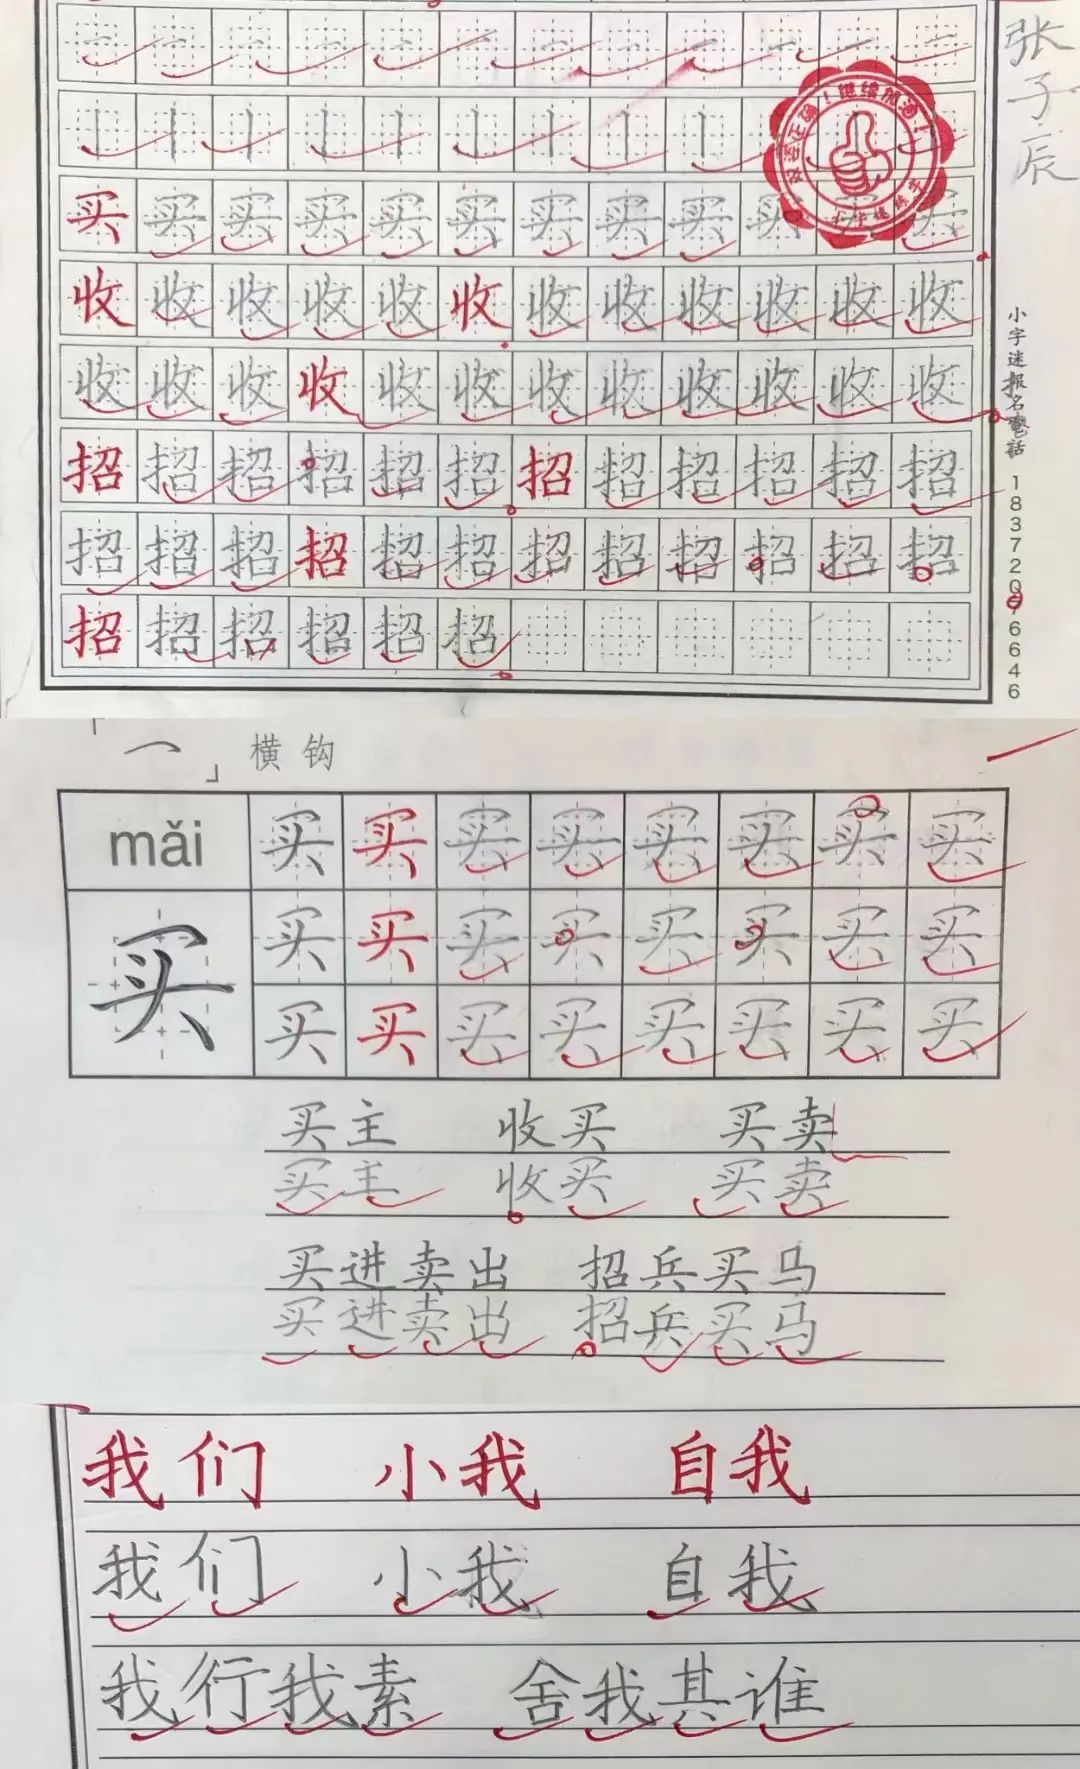 张子辰
一 一 一 一 一 一 一 一 一 一 一 一
丨 丨 丨 丨 丨 丨 丨 丨 丨
买 买 买 买 买 买 买 买 买 买 买 买
收 收 收 收 收 收 收 收 收 收 收 收
收 收 收 收 收 收 收 收 收 收 收 收
招 招 招 招 招 招 招 招 招 招 招 招
招 招 招 招 招 招 招 招 招 招 招 招
招 招 招 招 招 招
继续加油！
小字迷练字
小字迷报名電話
横钩
mǎi 买 买 买 买 买 买 买 买
买 买 买 买 买 买 买 买 买
买 买 买 买 买 买 买 买
买主 收买 买卖
买主 收买 买卖
买进卖出 招兵买马
买进卖出 招兵买马
我们 小我 自我
我们 小我 自我
我行我素 舍我其谁